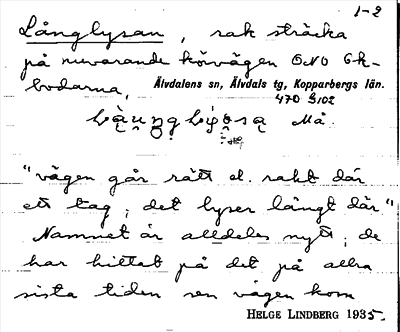 1-2
Långlysan, rak sträcka
på nuvarande körvägen ONO Gk-
bodarna,
Älvdalens sn, Älvdals tg, Kopparbergs län.
470 S102
Må.
"vägen går rätt el. rakt där
ett tag; det lyser långt där"
Namnet är alldeles nytt; de
har hittat på det på allra
sista tiden sen vägen kom
HELGE LINDBERG 1935.